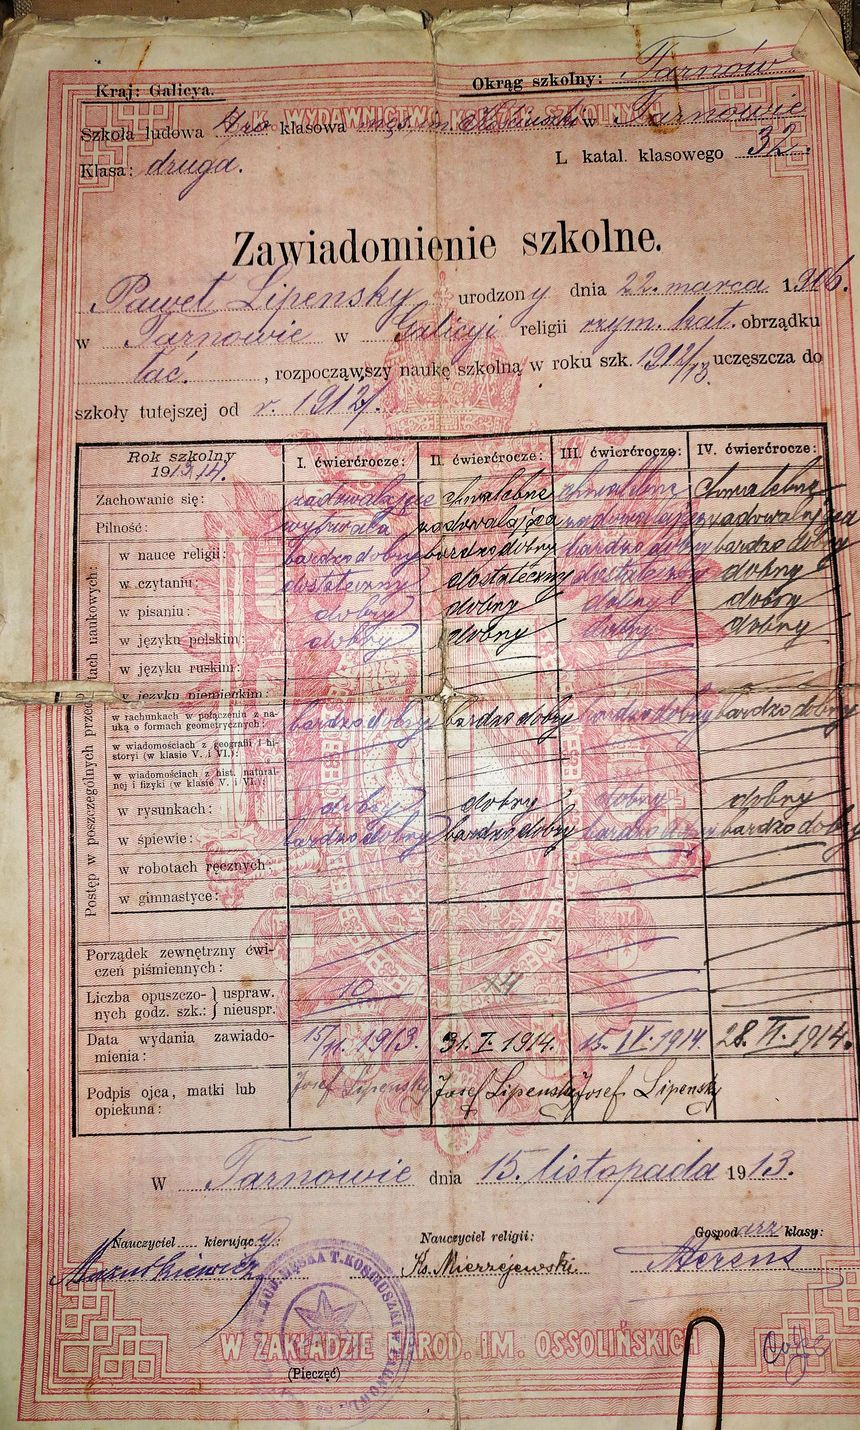 Kraj: Galicya.
Okrąg szkolny: Tarnów
C. K. WYDAWNICTWO KSIĄŻEK SZKOLNYCH
Szkoła ludowa 4ro klasowa męs. im. Kościuszki w Tarnowie
Klasa: druga.
L katal. klasowego 32.
Zawiadomienie szkolne.
Paweł Lipensky urodzony dnia 22. marca 1906.
w Tarnowie w Galicyi religii rzym. kat. obrządku
łać. , rozpocząwszy naukę szkolną w roku szk. 1912/13. uczęszcza do
szkoły tutejszej od r. 1912/.
Rok szkolny 1913/14. I. ćwierćrocze: II. ćwierćrocze: III. ćwierćrocze: IV. ćwierćrocze:
Zachowanie się: zadowalające chwalebne chwalebne chwalebne
Pilność: wytrwała zadowalająca zadowalająca zadowalniająca
Postęp w poszczególnych przedmiotach naukowych:
w nauce religii: bardzo dobry bardzo dobry bardzo dobry bardzo dobry
w czytaniu: dostateczny dostateczny dostateczny dobry
w pisaniu: dobry dobry dobry dobry
w języku polskim: dobry dobry dobry dobry
w języku ruskim:
w języku niemieckim:
w rachunkach w połączeniu z na-
uką o formach geometrycznych: bardzo dobry bardzo dobry bardzo dobry bardzo dobry
w wiadomościach z geografii i hi-
storyi (w klasie V. i VI.):
w wiadomościach z hist. natural-
nej i fizyki (w klasie V. i VI.):
w rysunkach: dobry dobry dobry dobry
w śpiewie: bardzo dobry bardzo dobry bardzo dobry bardzo dobry
w robotach ręcznych:
w gimnastyce:
Porządek zewnętrzny ćwi-
czeń piśmiennych:
Liczba opuszczo- uspraw. 10 44
nych godz. szk.: nieuspr.
Data wydania zawiado-
mienia: 15/11. 1913. 31. I. 1914. 15. IV. 1914. 28. VI. 1914.
Podpis ojca, matki lub
opiekuna: Josef Lipensky Josef Lipensky Josef Lipensky
W Tarnowie dnia 15. listopada 1913.
Nauczyciel kierujący: Nauczyciel religii: Gospodarz klasy:
Ks. Mierzejewski Merens
W ZAKŁADZIE NAROD. IM. OSSOLIŃSKICH
(Pieczęć)